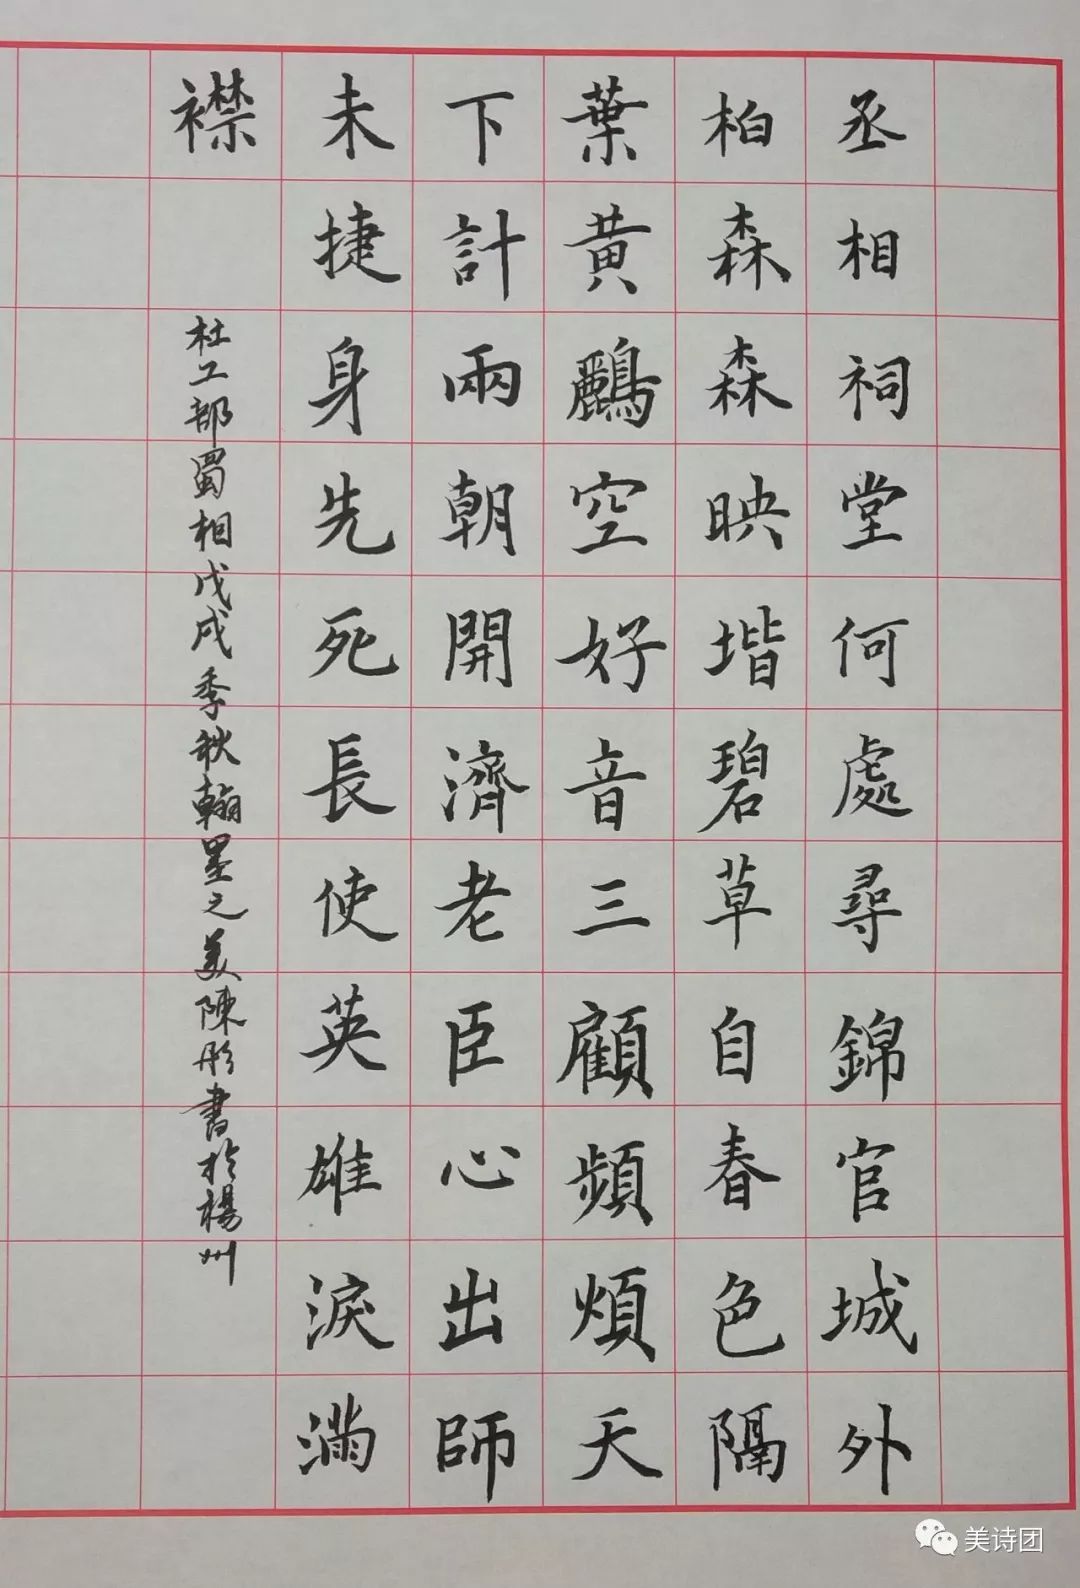 丞相祠堂何處尋錦官城外
柏森森映堦碧草自春色隔
葉黄鸝空好音三顧頻煩天
下計兩朝開濟老臣心出師
未捷身先死長使英雄淚滿
襟
杜工部蜀相戊戌季秋翰墨之美陳彤書於楊州
美诗团